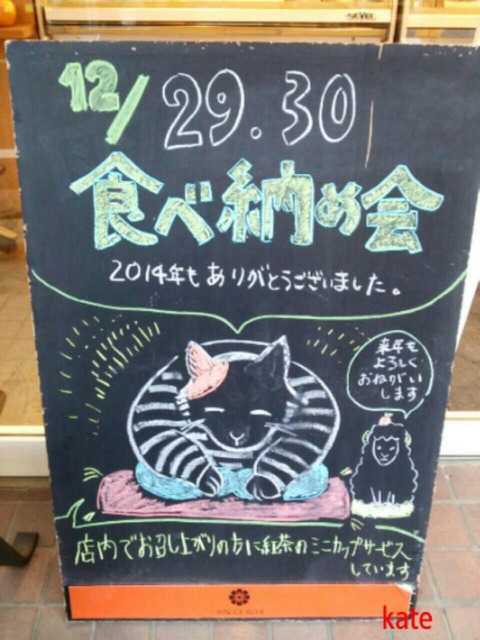 12/29.30
食べ納め会
2014年もありがとうございました。
来年も
よろしく
おねがい
します
店内でお召し上がりの方に紅茶のミニカップサービス
しています
kate